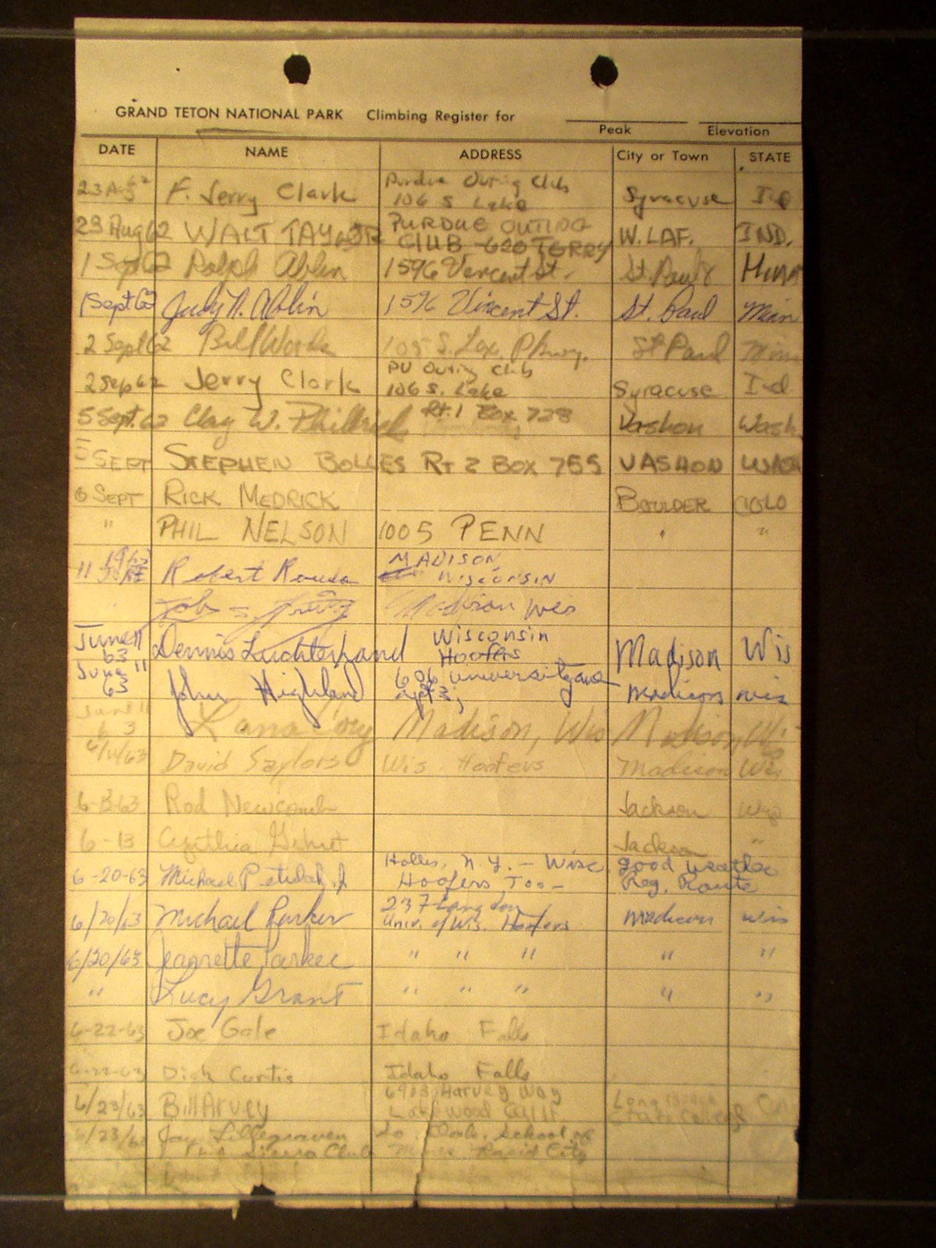 GRAND TETON NATIONAL PARK Climbing Register for
Peak Elevation
DATE NAME ADDRESS City or Town STATE
23 Aug 62 F. Jerry Clark Purdue Outing Club 106 S. Lake Syracuse Ind
23 Aug 62 WALT TAYLOR PURDUE OUTING CLUB - 620 TERRY W. LAF. IND.
1 Sept 62 Ralph Ablin 1596 Vincent St. St Paul Minn
1 Sept 62 Judy N. Ablin 1596 Vincent St. St. Paul Minn
2 Sept 62 Bill 105 S. Lex. Pkwy. St Paul Minn
2 Sep 62 Jerry Clark PU Outing Club 106 S. Lake Syracuse Ind.
5 Sept. 62 Clay W. Rt. 1 Box 728 Vashon Wash.
5 SEPT STEPHEN BOLLES RT 2 BOX 755 VASHON WASH
6 SEPT RICK MEDRICK BOULDER COLO
" PHIL NELSON 1005 PENN " "
11 1963 Robert MADISON WISCONSIN
Madison Wis
June 11 63 Dennis Luchterhand Wisconsin Hoofers Madison Wis
June 11 63 John Highland 606 University ave apt 3; Madison Wis
June 11 63 Lana Madison, Wis Madison, Wis
6/11/63 David Saylors Wis. Hoofers Madison Wis
6-13-63 Rod Newcomb Jackson Wyo
6-13 Cynthia Jackson "
6-20-63 Michael Hollis, N.Y. - Wisc Hoofers Too - good weather Reg. Route
6/20/63 Michael Parker 237 Langdon Univ. of Wis. Hoofers Madison Wis
6/20/63 Jeannette Parker " " " " "
" Lucy Grant " " " " "
6-22-63 Joe Gale Idaho Falls
6-22-63 Dick Curtis Idaho Falls
6/23/63 Bill Arvey 6903 Harvey Way Lakewood Calif. Long Beach State College
6/23/63 Jay Lillegraven So. Dak. School of Mines Rapid City
Sierra Club